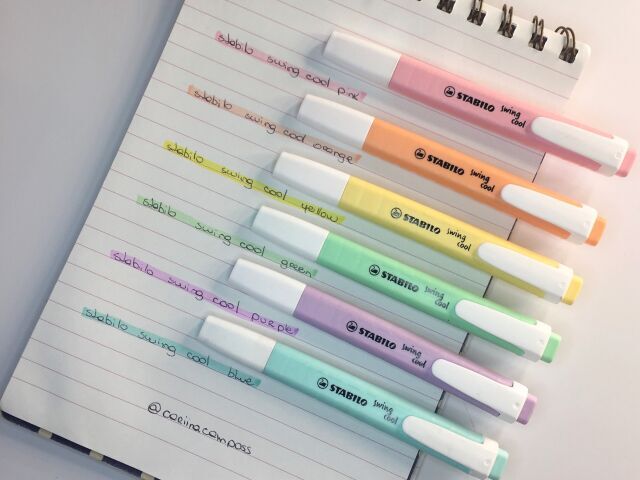 stabilo swing cool pink
STABILO swing cool
stabilo swing cool orange
STABILO swing cool
stabilo swing cool yellow
STABILO swing cool
stabilo swing cool green
STABILO swing cool
stabilo swing cool purple
STABILO swing cool
stabilo swing cool blue
STABILO swing cool
@coriinacamposs